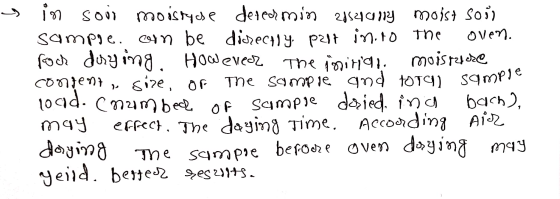 → in soil moisture determin usually moist soil
sample. can be directly put in.to the oven.
foor drying. However The initial. moisture
content, size, of The sample and total sample
load. (number of sample dried. in a bach),
may effect. The drying Time. According Air
drying The sample before oven drying may
yeild. better results.